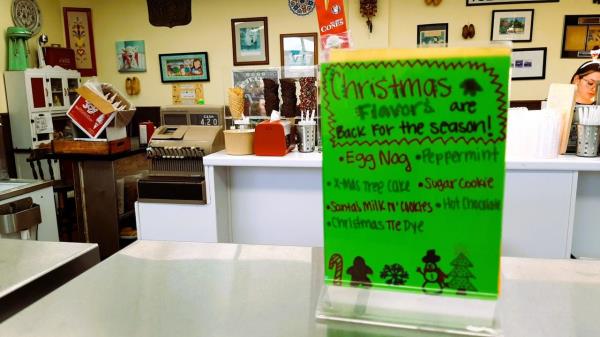 CONES
CASH
420
Christmas
Flavors are
Back For the season!
• Egg Nog • Peppermint
• X-Mas Tree Cake • Sugar Cookie
• Santa's Milk N' Cookies • Hot Chocolate
• Christmas Tie Dye